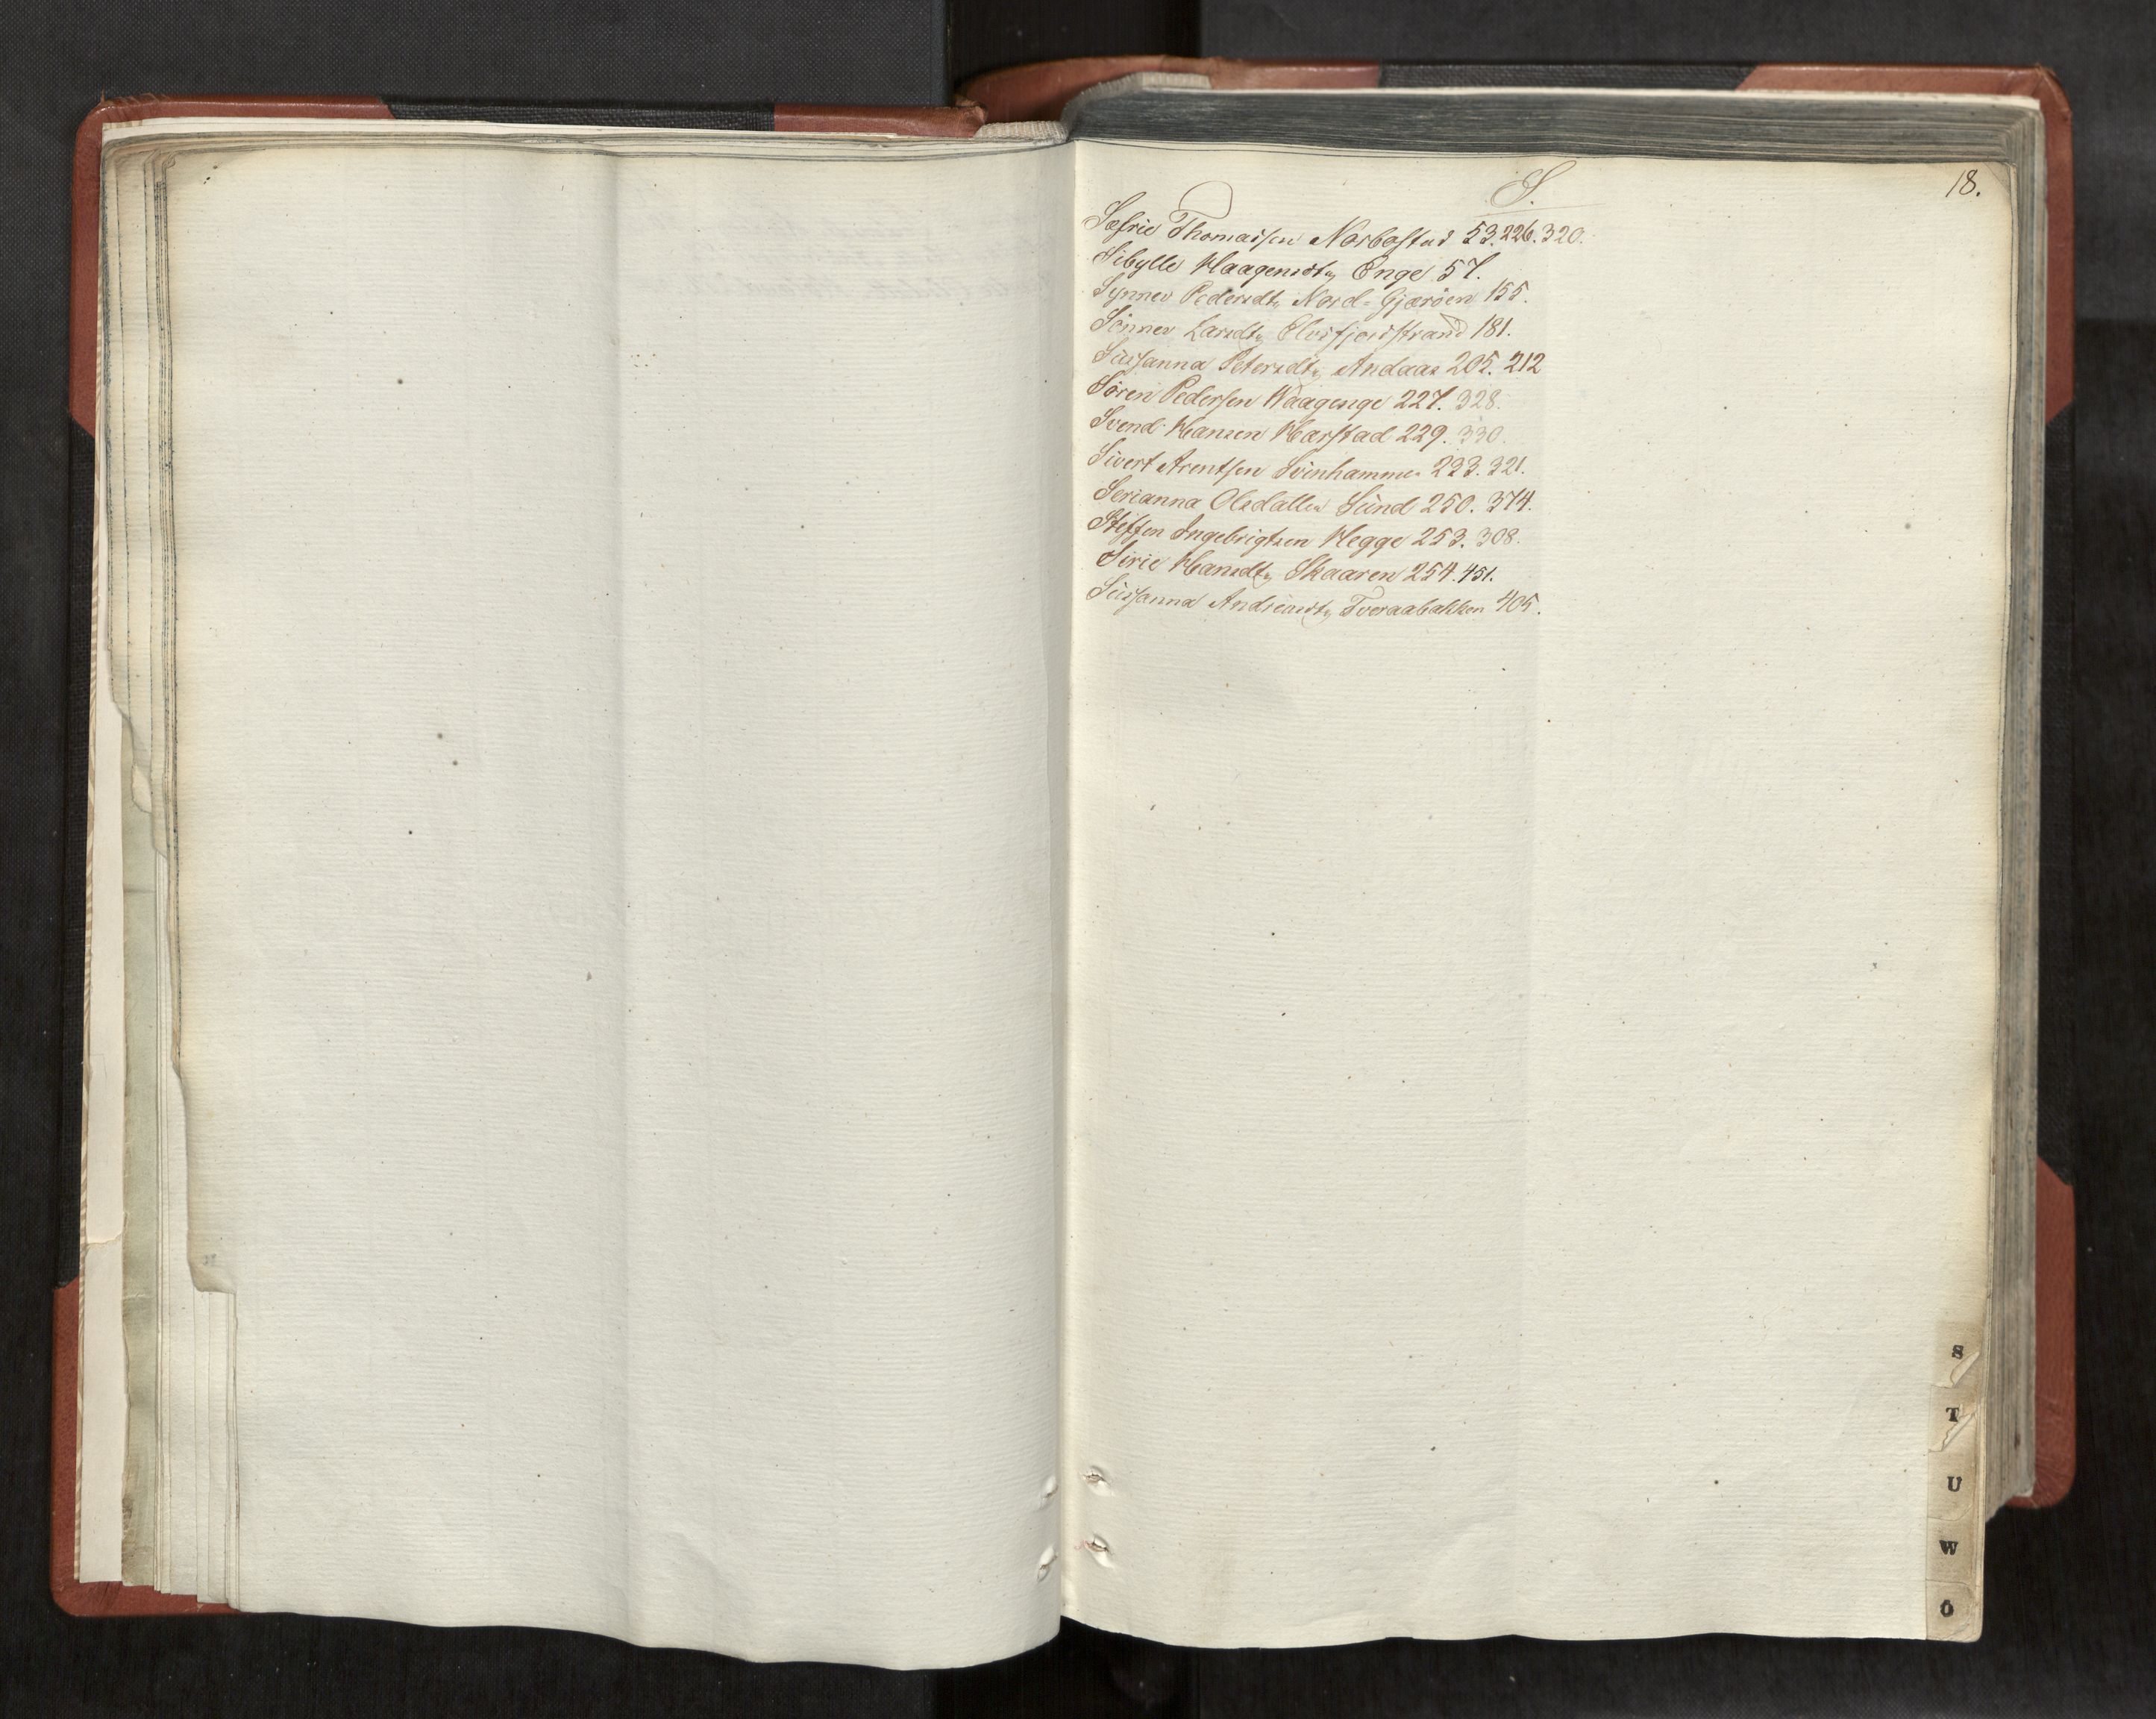 18.
S.
Sefrie Thomassen Norbostad 53. 226. 320.
Sibylle Haagensdtr Enge 57.
Synnev Pedersdtr Nord-Gjeröen 155.
Sönnev Larsdtr Elvsfjordstrand 181.
Süsanna Petersdtr Andaas 205. 212
Sören Pedersen Waagenge 227. 328.
Svend Hansen Harstad 229. 330.
Sivert Arentsen Svinhammer 233. 321.
Serianna Olsdatter Sünd 250. 374.
Steffen Ingebrigtsen Hegge 253. 308.
Sirie Hansdtr Skaaren 254. 451.
Süsanna Andreasdtr Tveraabakken 405.
S
T
U
W
Ö